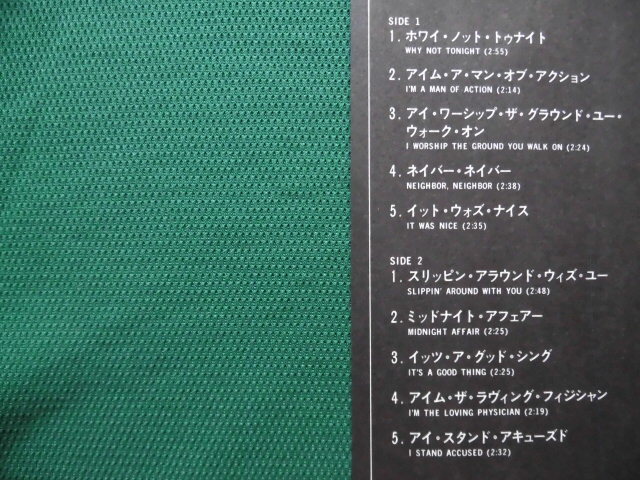 SIDE 1
1. ホワイ・ノット・トゥナイト
WHY NOT TONIGHT (2:55)
2. アイム・ア・マン・オブ・アクション
I'M A MAN OF ACTION (2:14)
3. アイ・ワーシップ・ザ・グラウンド・ユー・
ウォーク・オン
I WORSHIP THE GROUND YOU WALK ON (2:24)
4. ネイバー・ネイバー
NEIGHBOR, NEIGHBOR (2:38)
5. イット・ウォズ・ナイス
IT WAS NICE (2:35)
SIDE 2
1. スリッピン・アラウンド・ウィズ・ユー
SLIPPIN' AROUND WITH YOU (2:48)
2. ミッドナイト・アフェアー
MIDNIGHT AFFAIR (2:25)
3. イッツ・ア・グッド・シング
IT'S A GOOD THING (2:25)
4. アイム・ザ・ラヴィング・フィジシャン
I'M THE LOVING PHYSICIAN (2:19)
5. アイ・スタンド・アキューズド
I STAND ACCUSED (2:32)